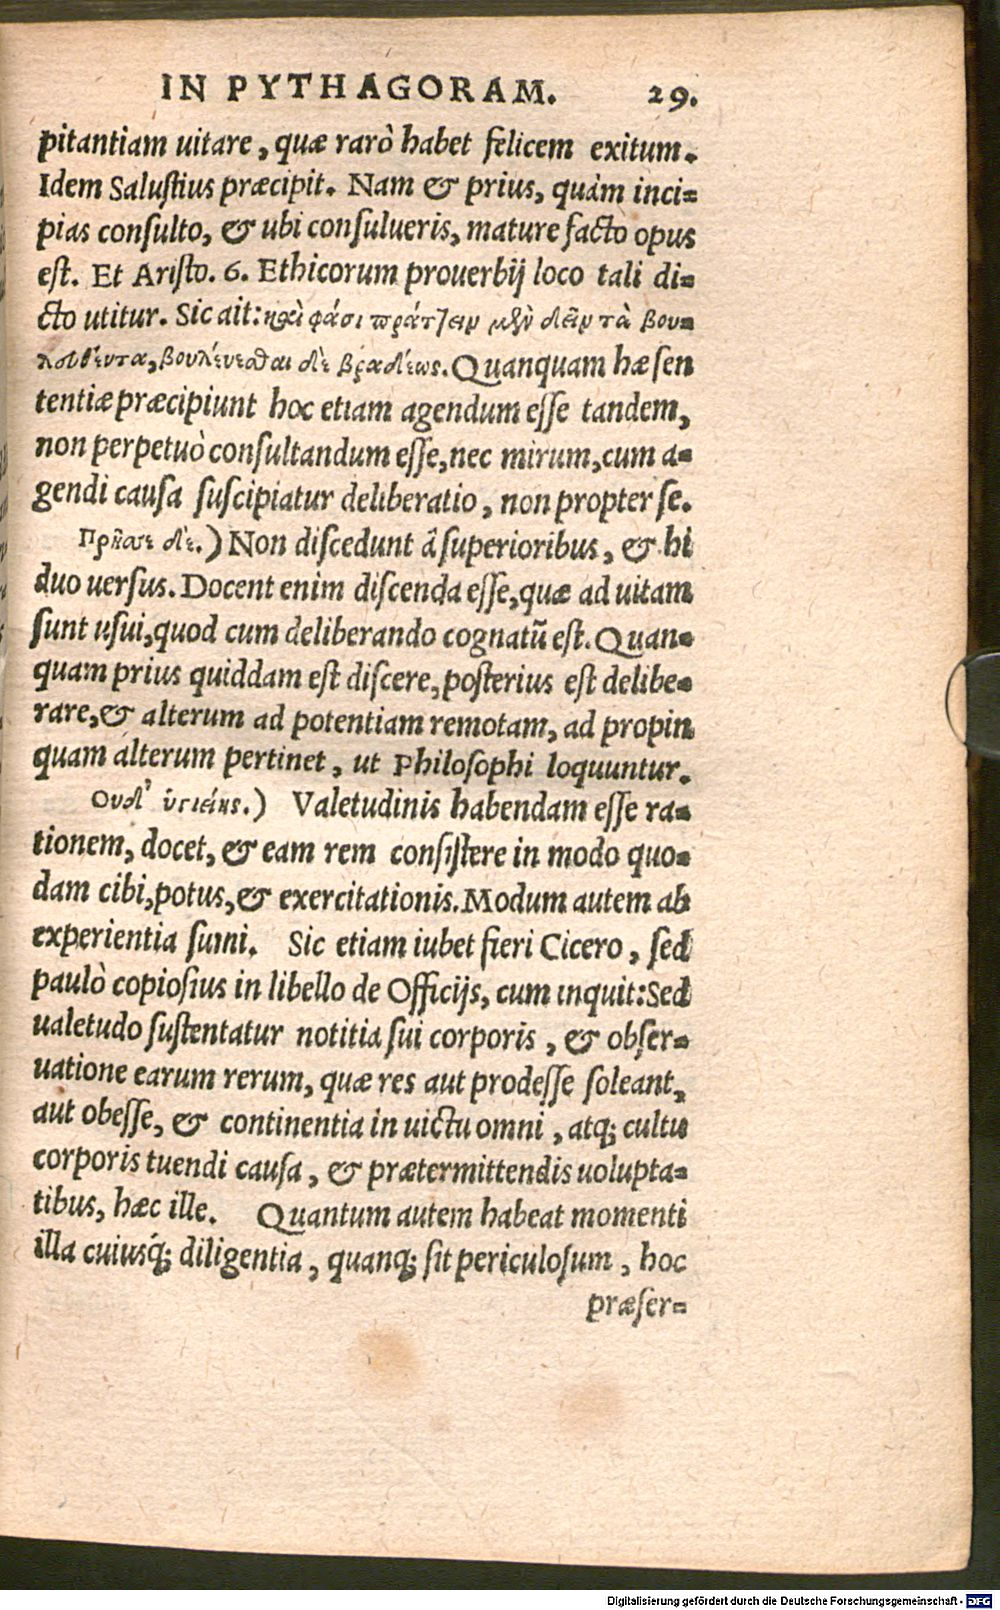 IN PYTHAGORAM. 29.
pitantiam uitare, quæ rarò habet felicem exitum.
Idem Salustius præcipit. Nam & prius, quàm inci-
pias consulto, & ubi consulueris, mature facto opus
est. Et Aristo. 6. Ethicorum prouerbij loco tali di-
cto utitur. Sic ait: καὶ φάσι πράττειν μὲν δεῖν τὰ βου-
λευθέντα, βουλέυεσθαι δὲ βραδέως. Quanquam hæ sen
tentiæ præcipiunt hoc etiam agendum esse tandem,
non perpetuò consultandum esse, nec mirum, cum a-
gendi causa suscipiatur deliberatio, non propter se.
Πρῆσσε δὲ.) Non discedunt à superioribus, & hi
duo uersus. Docent enim discenda esse, quæ ad uitam
sunt usui, quod cum deliberando cognatũ est. Quan-
quam prius quiddam est discere, posterius est delibe-
rare, & alterum ad potentiam remotam, ad propin
quam alterum pertinet, ut Philosophi loquuntur.
Ουδ' ὑγιείης.) Valetudinis habendam esse ra-
tionem, docet, & eam rem consistere in modo quo-
dam cibi, potus, & exercitationis. Modum autem ab
experientia sumi. Sic etiam iubet fieri Cicero, sed
paulò copiosius in libello de Officijs, cum inquit: Sed
ualetudo sustentatur notitia sui corporis, & obser-
uatione earum rerum, quæ res aut prodesse soleant,
aut obesse, & continentia in uictu omni, atq; cultu
corporis tuendi causa, & prætermittendis uolupta-
tibus, hæc ille. Quantum autem habeat momenti
illa cuiusq́; diligentia, quanq; sit periculosum, hoc
præser-
Digitalisierung gefördert durch die Deutsche Forschungsgemeinschaft - DFG